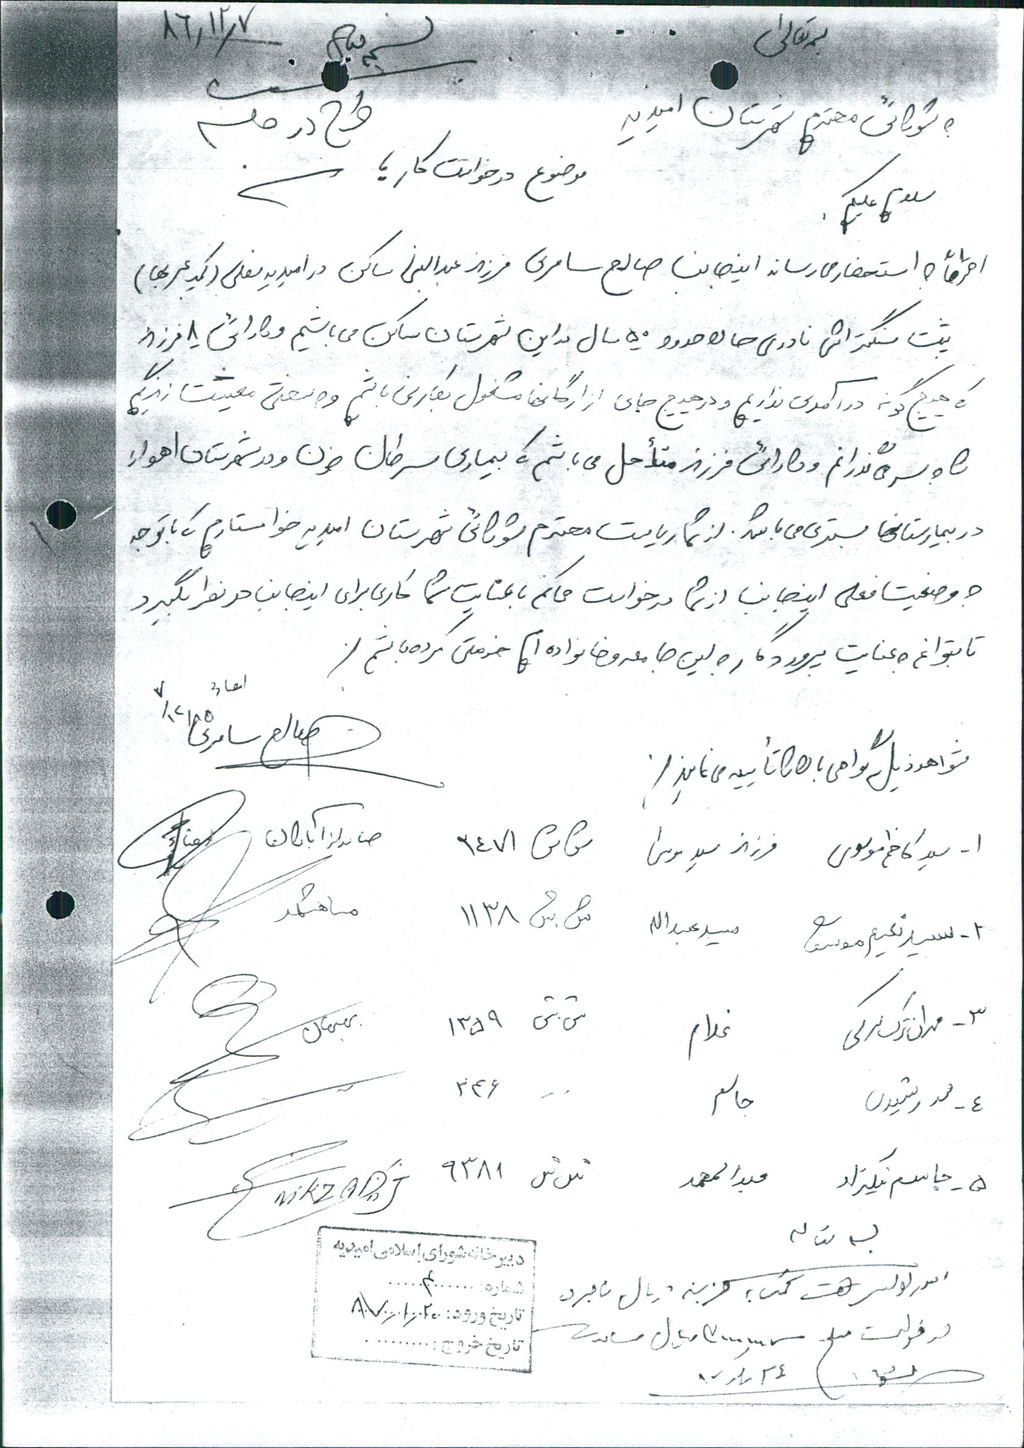 بسمه تعالی
۸۶/۱۲/۷
طرح در جلسه
به شورای محترم شهرستان امیدیه
موضوع درخواست کار یا
سلام علیکم
احتراماً به استحضار می رساند اینجانب صالح سامری فرزند عبدالنبی ساکن در امیدیه سفلی (کمپ عربها)
پشت سنگتراشی نادری حدود ۵۰ سال در این شهرستان ساکن می باشیم و دارای ۸ فرزند
که هیچ گونه درآمدی نداریم و در هیچ جای از ارگانها مشغول بکاری نباشم و به سختی معیشت زندگیم
را به سر می گذرانم و دارای فرزند متأهل می باشم که بیماری سرطان خون و در شهرستان اهواز
در بیمارستانها بستری می باشد. از شما ریاست محترم شورای شهرستان امیدیه خواستارم که با توجه
به وضعیت فعلی اینجانب از شما درخواست می کنم با عنایت شما کاری برای اینجانب در نظر بگیرد
تا بتوانم به عنایت پروردگار به این جامعه و خانواده ام خدمتی کرده باشم /
صالح سامری
شواهد ذیل گواهی بالا را تأیید می نمایند /
۱- سید کاظم موسوی فرزند سید موسی ش ش ۶۴۷۱ صادره از آبادان
۲- سید نعیم موسوی سید عبداله ش ش ۱۱۳۸ ماهشهر
۳- مهران ترک غلام ش ش ۱۳۵۹ بهبهان
۴- محمد رشیدی جاسم " " ۲۴۶
۵- جاسم نیکزاد عبدالمحمد ش ش ۹۳۸۱ NIKZAD J
بسمه تعاله
دبیرخانه شورای اسلامی امیدیه
شماره: ........
تاریخ ورود: ۸۷/۰۱/۲۰
تاریخ خروج: ........
درخواست مبلغ ریال